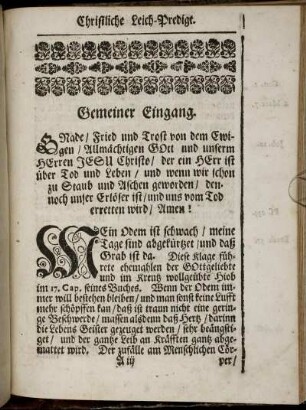 Christliche Leich-Predigt.
Gemeiner Eingang.
GNade/ Fried und Trost von dem Ewi-
gen/ Allmächtigen GOtt und unserm
HErren JESU Christo/ der ein HErr ist
über Tod und Leben/ und wenn wir schon
zu Staub und Aschen geworden/ den-
noch unser Erlöser ist/ und uns vom Tod
erretten wird/ Amen!
MEin Odem ist schwach/ meine
Tage sind abgekürtzet und daß
Grab ist da. Diese Klage füh-
rete ehemahlen der GOttgeliebte
und im Kreutz wollgeübte Hiob
im 17. Cap. seines Buches. Wenn der Odem im-
mer will bestehen bleiben/ und man sonst keine Lufft
mehr schöpffen kan/ daß ist traun nicht eine gerin-
ge Beschwerde/ massen alsdenn daß Hertz/ darinn
die Lebens Geister gezeuget werden/ sehr beängsti-
get/ und der gantze Leib an Kräfften gantz abge-
mattet wird. Der zufälle am Menschlichen Cör-
A iij
per/